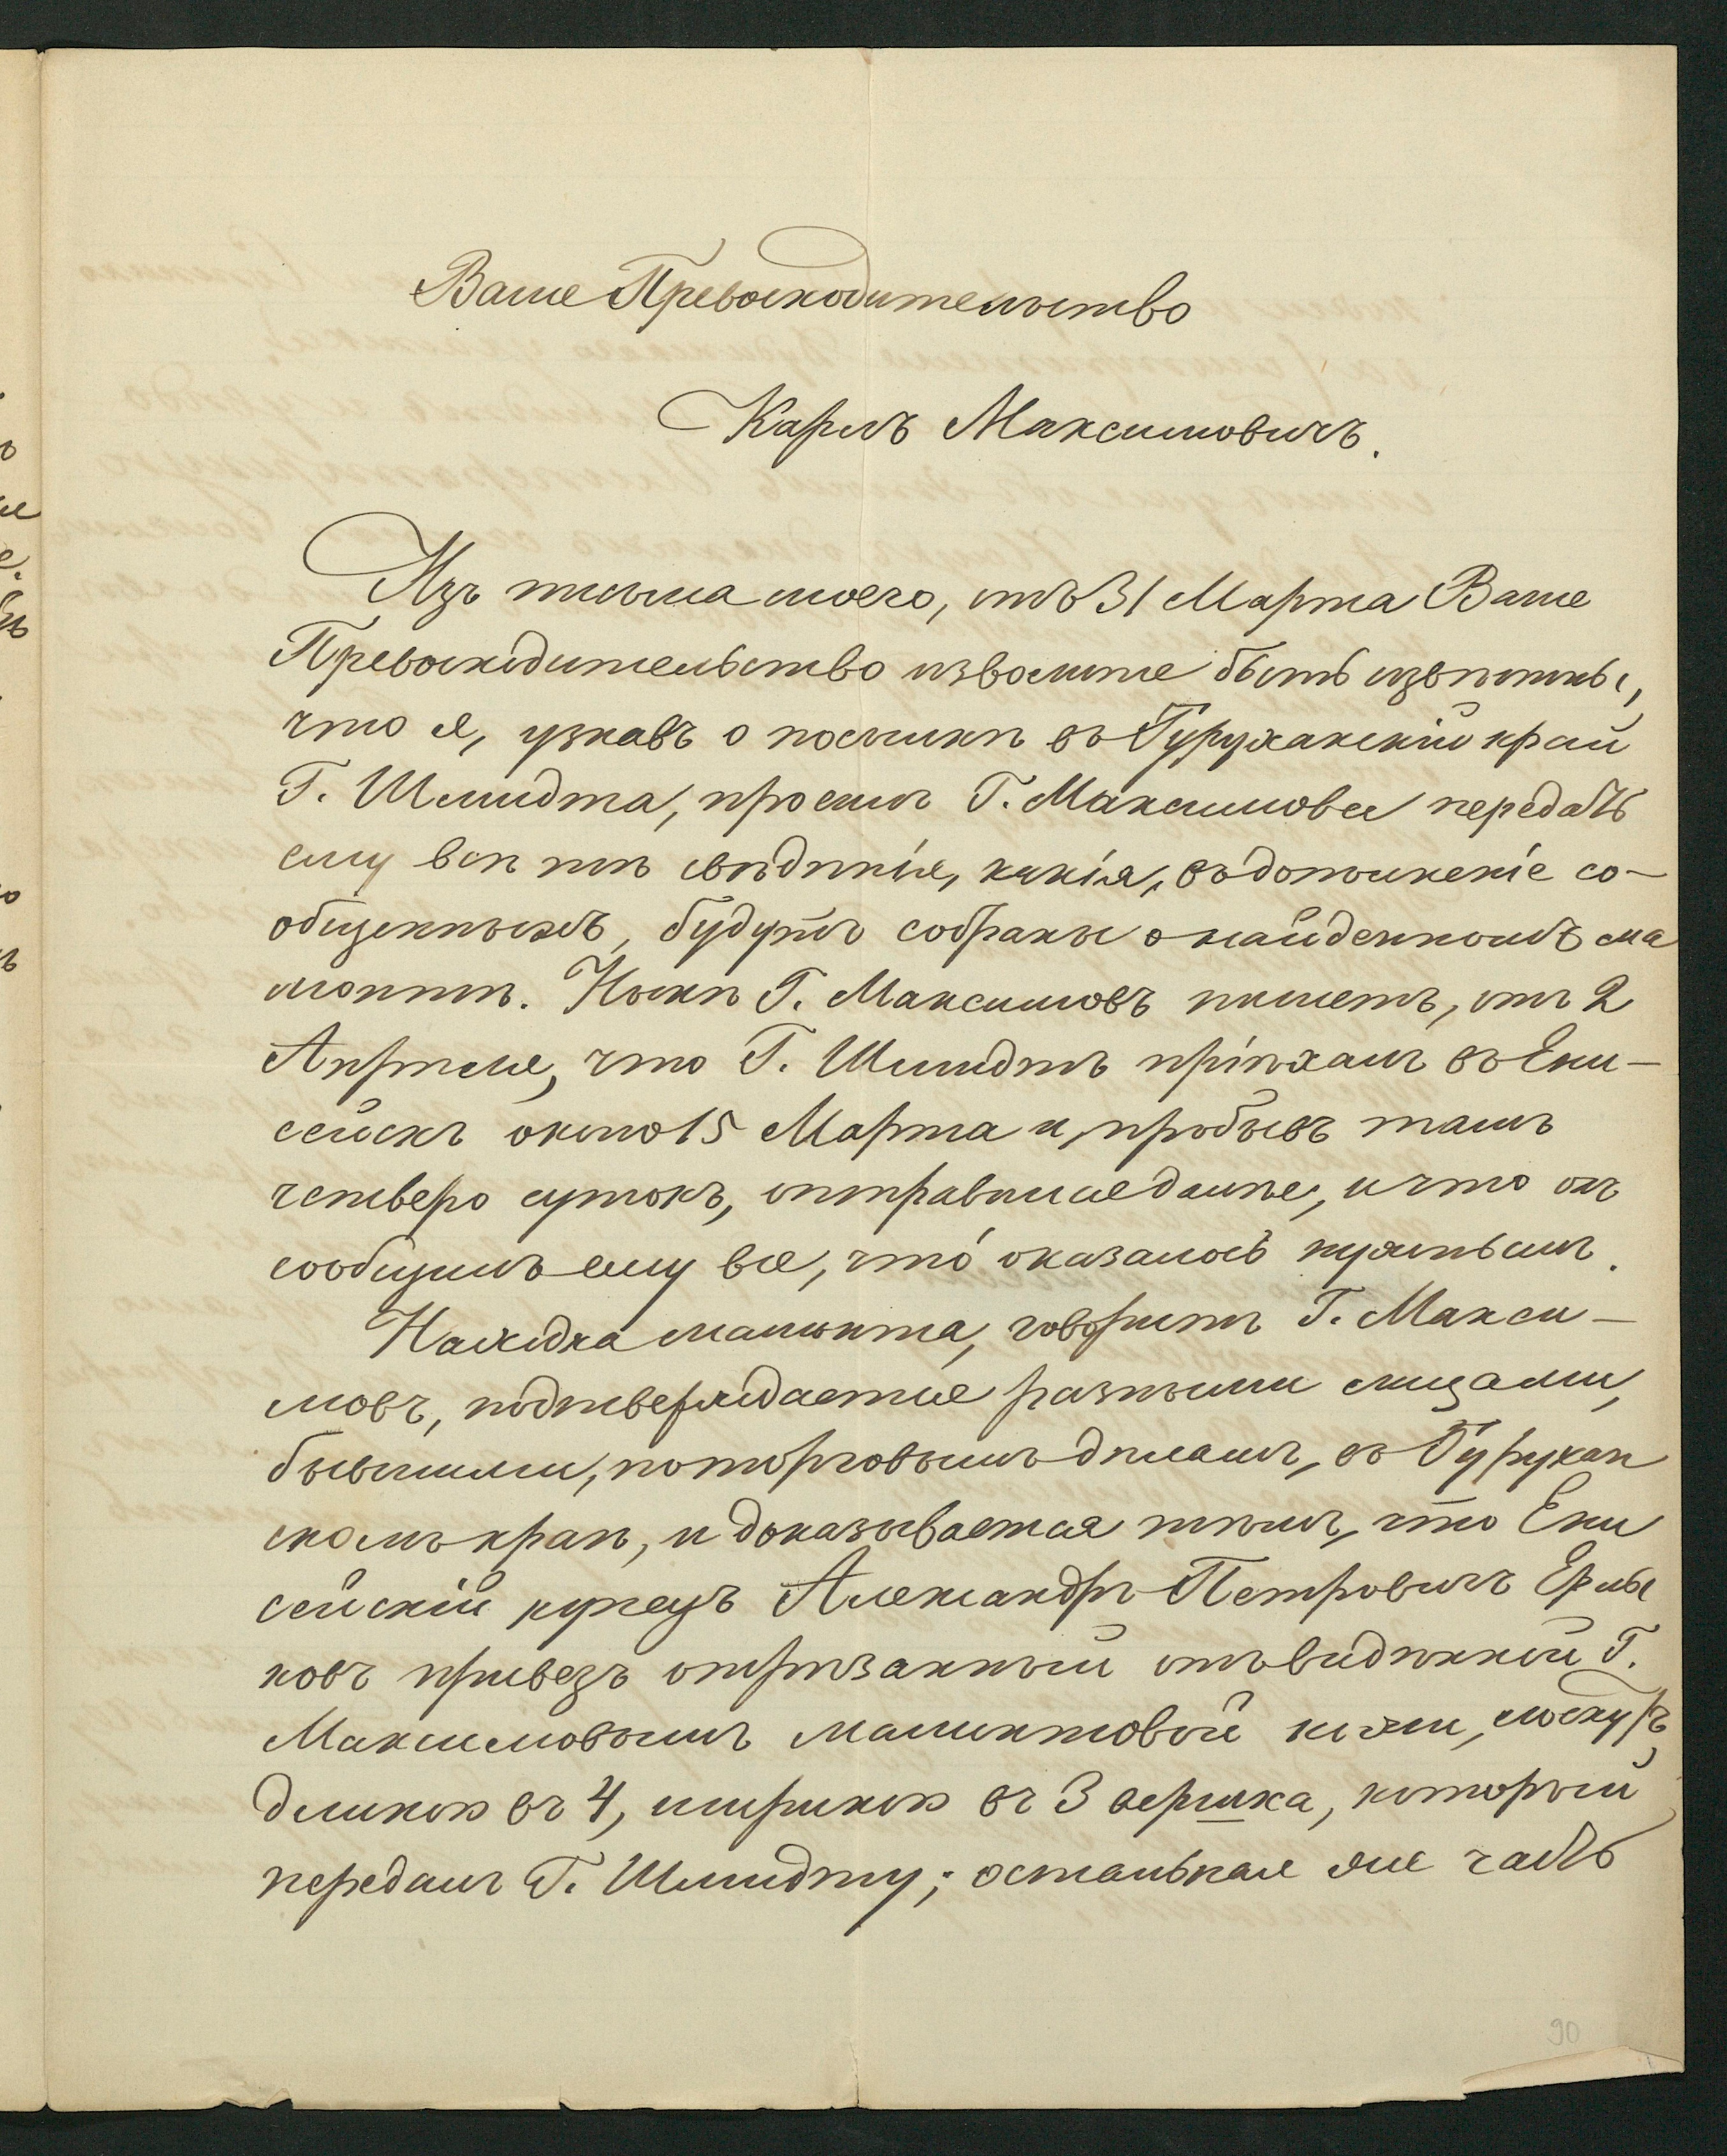 Ваше Превосходительство
Карлъ Максимовичъ.
Изъ письма моего, отъ 31 Марта Ваше
Превосходительство изволите быть извѣстны,
что я, узнавъ о посылкѣ въ Туруханскій край
Г. Шмидта, просилъ Г. Максимова передать
ему всѣ тѣ свѣдѣнія, какія, въ дополненіе со-
общенныхъ, будутъ собраны о найденномъ ма
монтѣ. Нынѣ Г. Максимовъ пишетъ, отъ 2
Апрѣля, что Г. Шмидтъ пріѣхалъ въ Ени-
сейскъ около 15 Марта и, пробывъ тамъ
четверо сутокъ, отправился далѣе, и что онъ
сообщилъ ему все, что́ оказалось нужнымъ.
Находка мамонта, говоритъ Г. Макси-
мовъ, подтверждается разными лицами,
бывшими, по торговымъ дѣламъ, въ Турухан
скомъ краѣ, и доказывается тѣмъ, что Ени
сейскій купецъ Александръ Петровичъ Ерлы
ковъ привезъ отрѣзанный отъ видѣнной Г.
Максимовымъ мамонтовой кожи, лоскутъ,
длиною въ 4, шириною въ 3 вершка, который
передалъ Г. Шмидту; остальная же часть
90